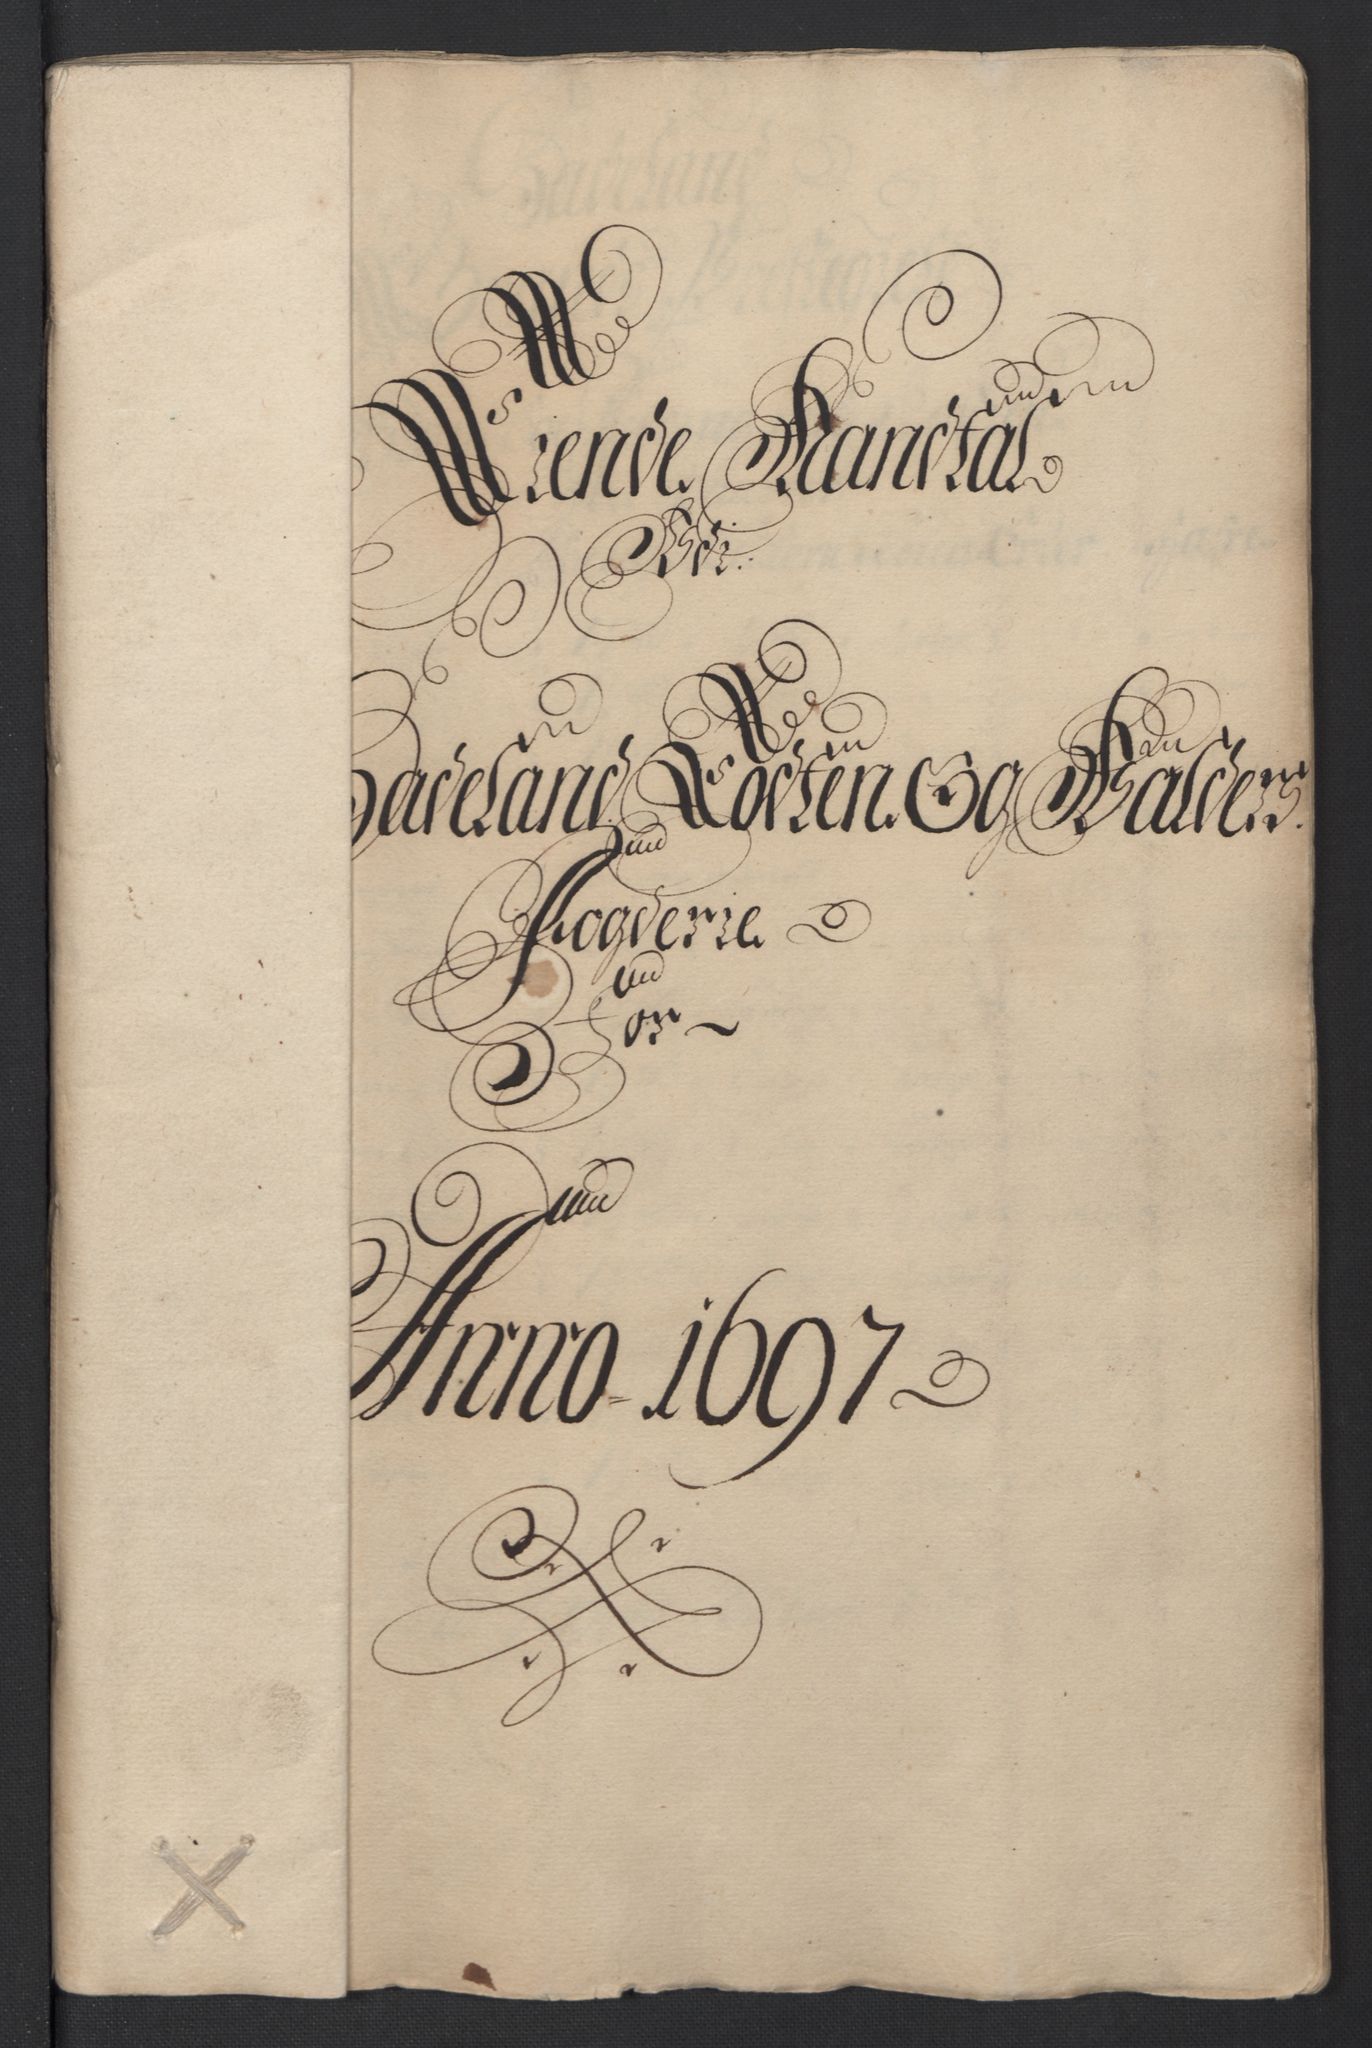 Tiende Mandtal
Ofr.
Hadeland Toten Og Valders
Fogderie
For
Anno 1697